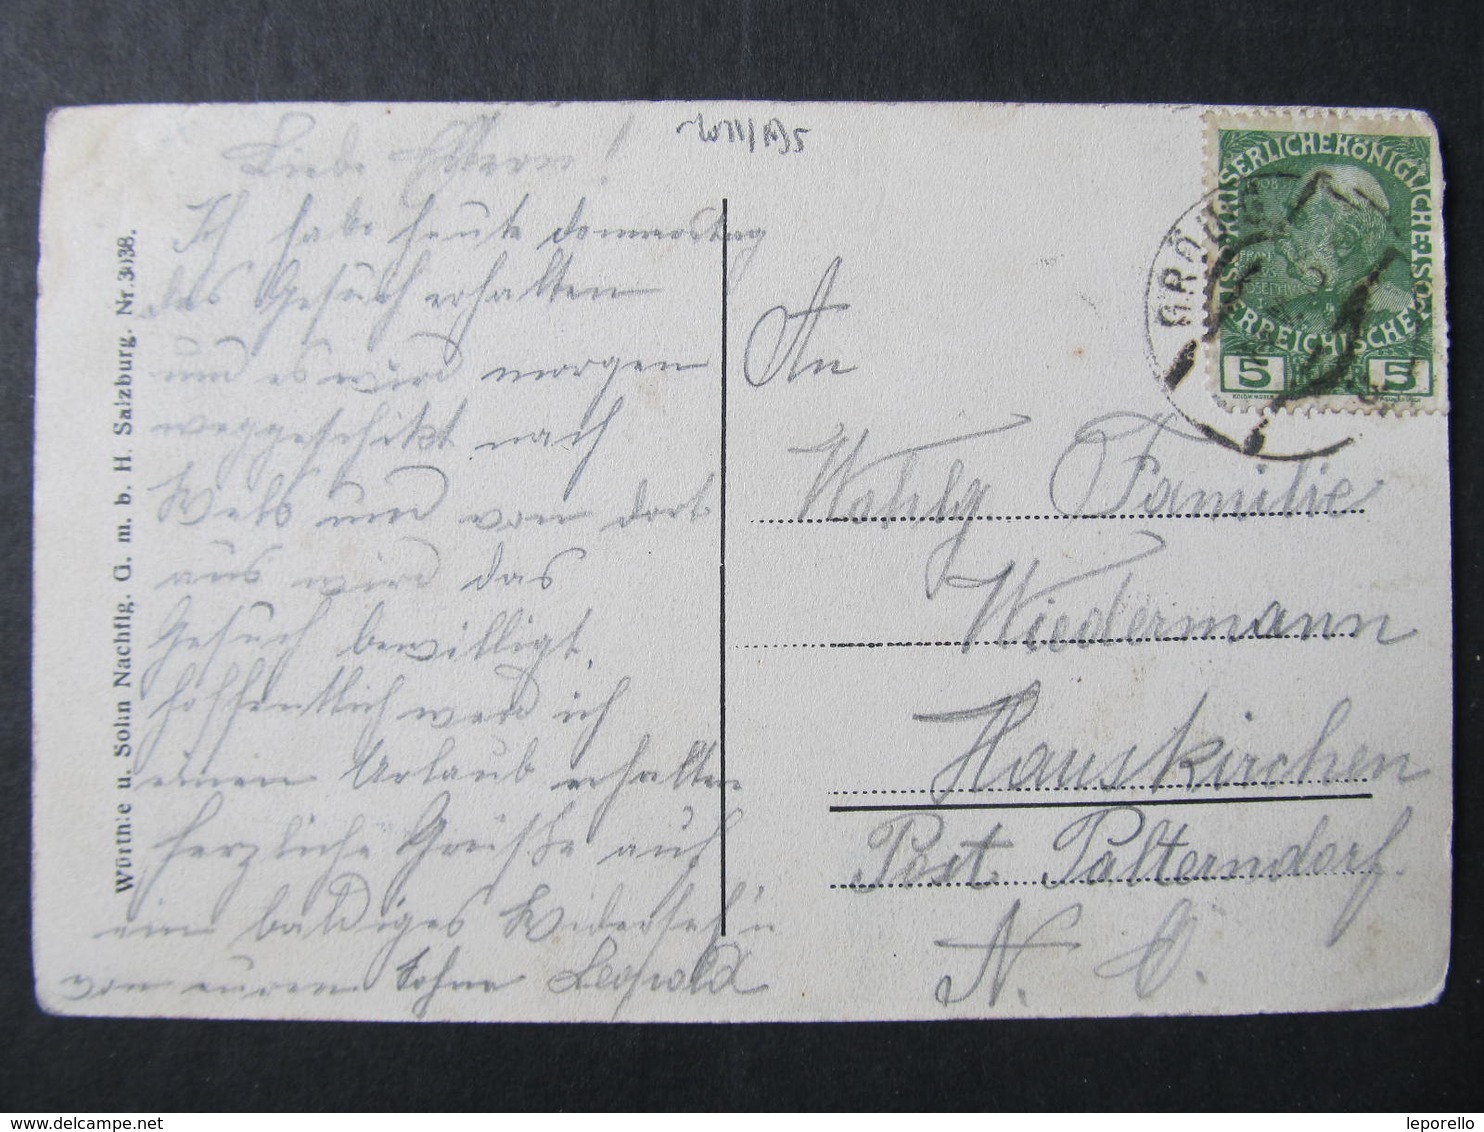 Liebe Eltern!
Ich habe heute donnerstag
das Gesuch erhalten
und es wird morgen
weggeschikt nach
Wels und von dort
aus wird das
Gesuch bewilligt.
hoffentlich werd ich
einen Urlaub erhalten
herzliche Grüsse auf
ein baldiges Widerseh'n
von euren Sohne Leopold
Nr. 3038.
Würthle u. Sohn Nachflg. G. m. b. H. Salzburg.
An
Wohlg Familie
Wiedermann
Hauskirchen
Post Palterndorf.
N. Ö.
KAISERLICHE KÖNIGLICHE
ÖSTERREICHISCHE
5 5
leporello